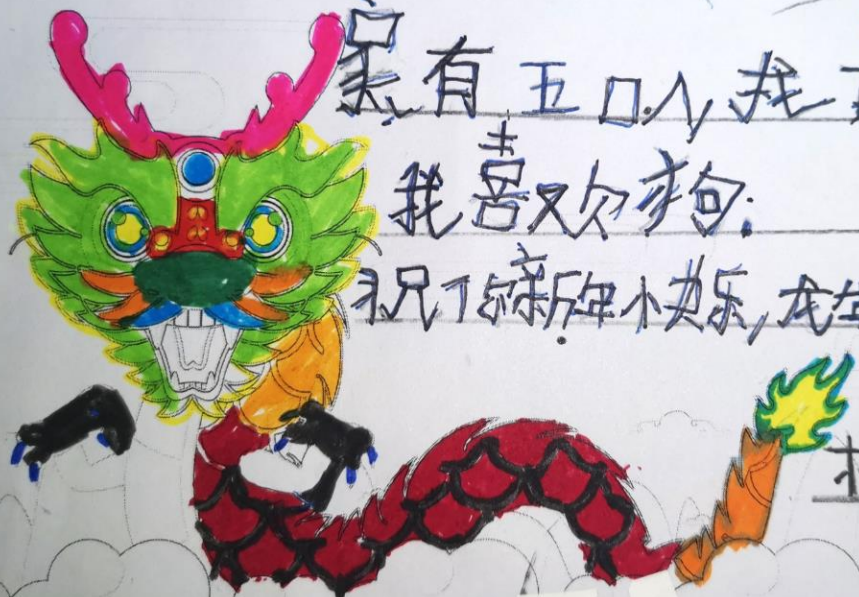 家有五口人,我
我喜欢狗.
祝你新年快乐,龙年